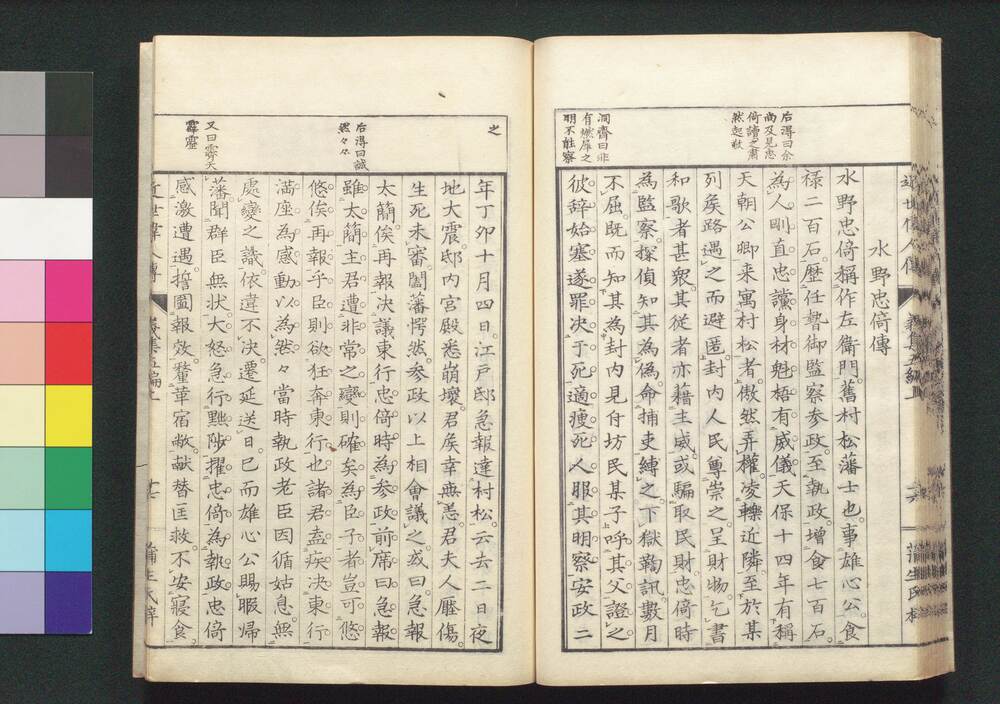 水野忠倚傳
水野忠倚稱作左衛門舊村松藩士也事雄心公食
祿二百石歷任暬御監察参政至執政增食七百石
為人剛直忠讜身材魁梧有威儀天保十四年有稱
天朝公卿来寓村松者傲然弄權凌轢近隣至於某
列矦路遇之而避匿封内人民尊崇之呈財物乞書
和歌者甚衆其從者亦藉主威或騙取民財忠倚時
為監察探偵知其為偽命捕吏縛之下獄鞠訊數月
不屈既而知其為封内見付坊民某子呼其父證之
彼辞始塞遂罪决于死適瘦死人服其明察安政二
后得曰余
尚及見忠
倚讀之肅
然起敬
洞齋曰非
有燃犀之
明不能察
之
年丁卯十月四日江戸邸急報達村松云去二日夜
地大震邸内宮殿悉崩壞君矦幸無恙君夫人壓傷
生死未審闔藩愕然参政以上相會議之或曰急報
太簡俟再報决議東行忠倚時為参政前席曰急報
雖太簡主君遭非常之變則確矣為臣子者豈可悠
悠俟再報乎臣則欲狂奔東行也諸君盍疾决東行
満座為感動以為然々當時執政老臣因循姑息無
處變之識依違不决遷延送日已而雄心公賜暇歸
藩聞群臣無状大怒急行黜陟擢忠倚為執政忠倚
感激遭遇擔圖報效釐革宿敝献替匡救不安寢食
后得曰誠
然々々
又曰霽天
霹靂
近世偉人傳
蒲生氏梓